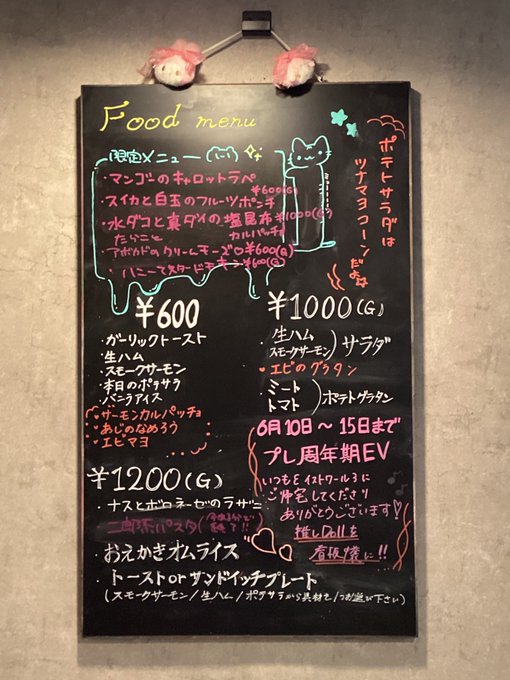 Food menu
限定メニュー
・マンゴーのキャロットラペ
¥600(G)
・スイカと白玉のフルーツポンチ
・水ダコと真ダイの塩昆布 ¥1000(G)
カルパッチョ
たらこと
アボカドのクリームチーズ ¥600(G)
・ハニーマスタード ¥600(G)
ポテトサラダは
ツナマヨコーン
だよ
¥600
・ガーリックトースト
・生ハム
・スモークサーモン
・本日のポテサラ
・バニラアイス
・サーモンカルパッチョ
・あじのなめろう
・エビマヨ
¥1000(G)
・生ハム
スモークサーモン)サラダ
・エビのグラタン
・ミート
・トマト)ポテトグラタン
6月10日〜15日まで
プレ周年期EV
いつもE イストワール3に
ご帰宅してくださり
ありがとうございます!
推しDollを
看板嬢に!!
¥1200(G)
・ナスとボロネーゼのラザニー
二郎系パスタ
・おえかきオムライス
・トーストorサンドイッチプレート
(スモークサーモン/生ハム/ポテサラから具材を1つお選び下さい)